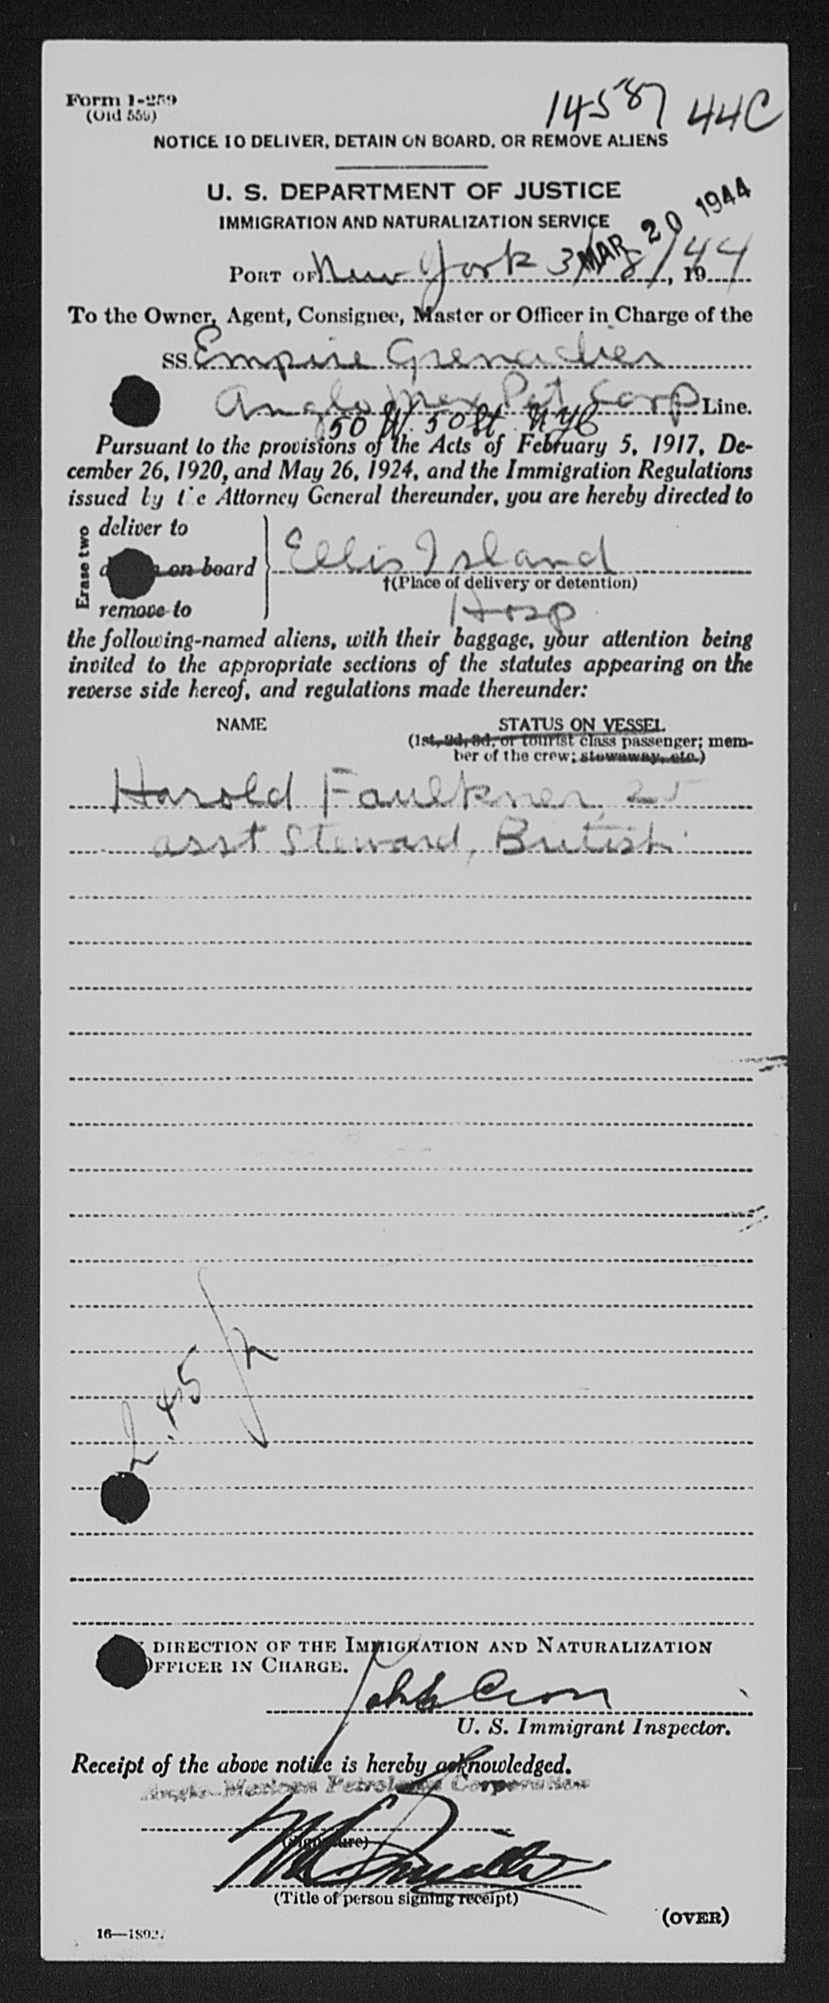 Form I-259
(Old 559)
14587 44C
NOTICE TO DELIVER, DETAIN ON BOARD, OR REMOVE ALIENS
U. S. DEPARTMENT OF JUSTICE
IMMIGRATION AND NATURALIZATION SERVICE
MAR 20 1944
PORT OF New York 3/18/, 1944
To the Owner, Agent, Consignee, Master or Officer in Charge of the
SS. Empire Grenadier
Anglo Mex Pet Corp Line.
50 W. 50 St NYC
Pursuant to the provisions of the Acts of February 5, 1917, De-
cember 26, 1920, and May 26, 1924, and the Immigration Regulations
issued by the Attorney General thereunder, you are hereby directed to
Erase two
deliver to
on board
remove to
Ellis Island
†(Place of delivery or detention)
Hosp
the following-named aliens, with their baggage, your attention being
invited to the appropriate sections of the statutes appearing on the
reverse side hereof, and regulations made thereunder:
NAME
STATUS ON VESSEL
(1st, 2d, 3d, or tourist class passenger; mem-
ber of the crew; stowaway, etc.)
Harold Faulkner, 25
asst Steward, British
2.45
DIRECTION OF THE IMMIGRATION AND NATURALIZATION
OFFICER IN CHARGE.
U. S. Immigrant Inspector.
Receipt of the above notice is hereby acknowledged.
Anglo-Mexican Petroleum Corporation
(Signature)
(Title of person signing receipt)
(OVER)